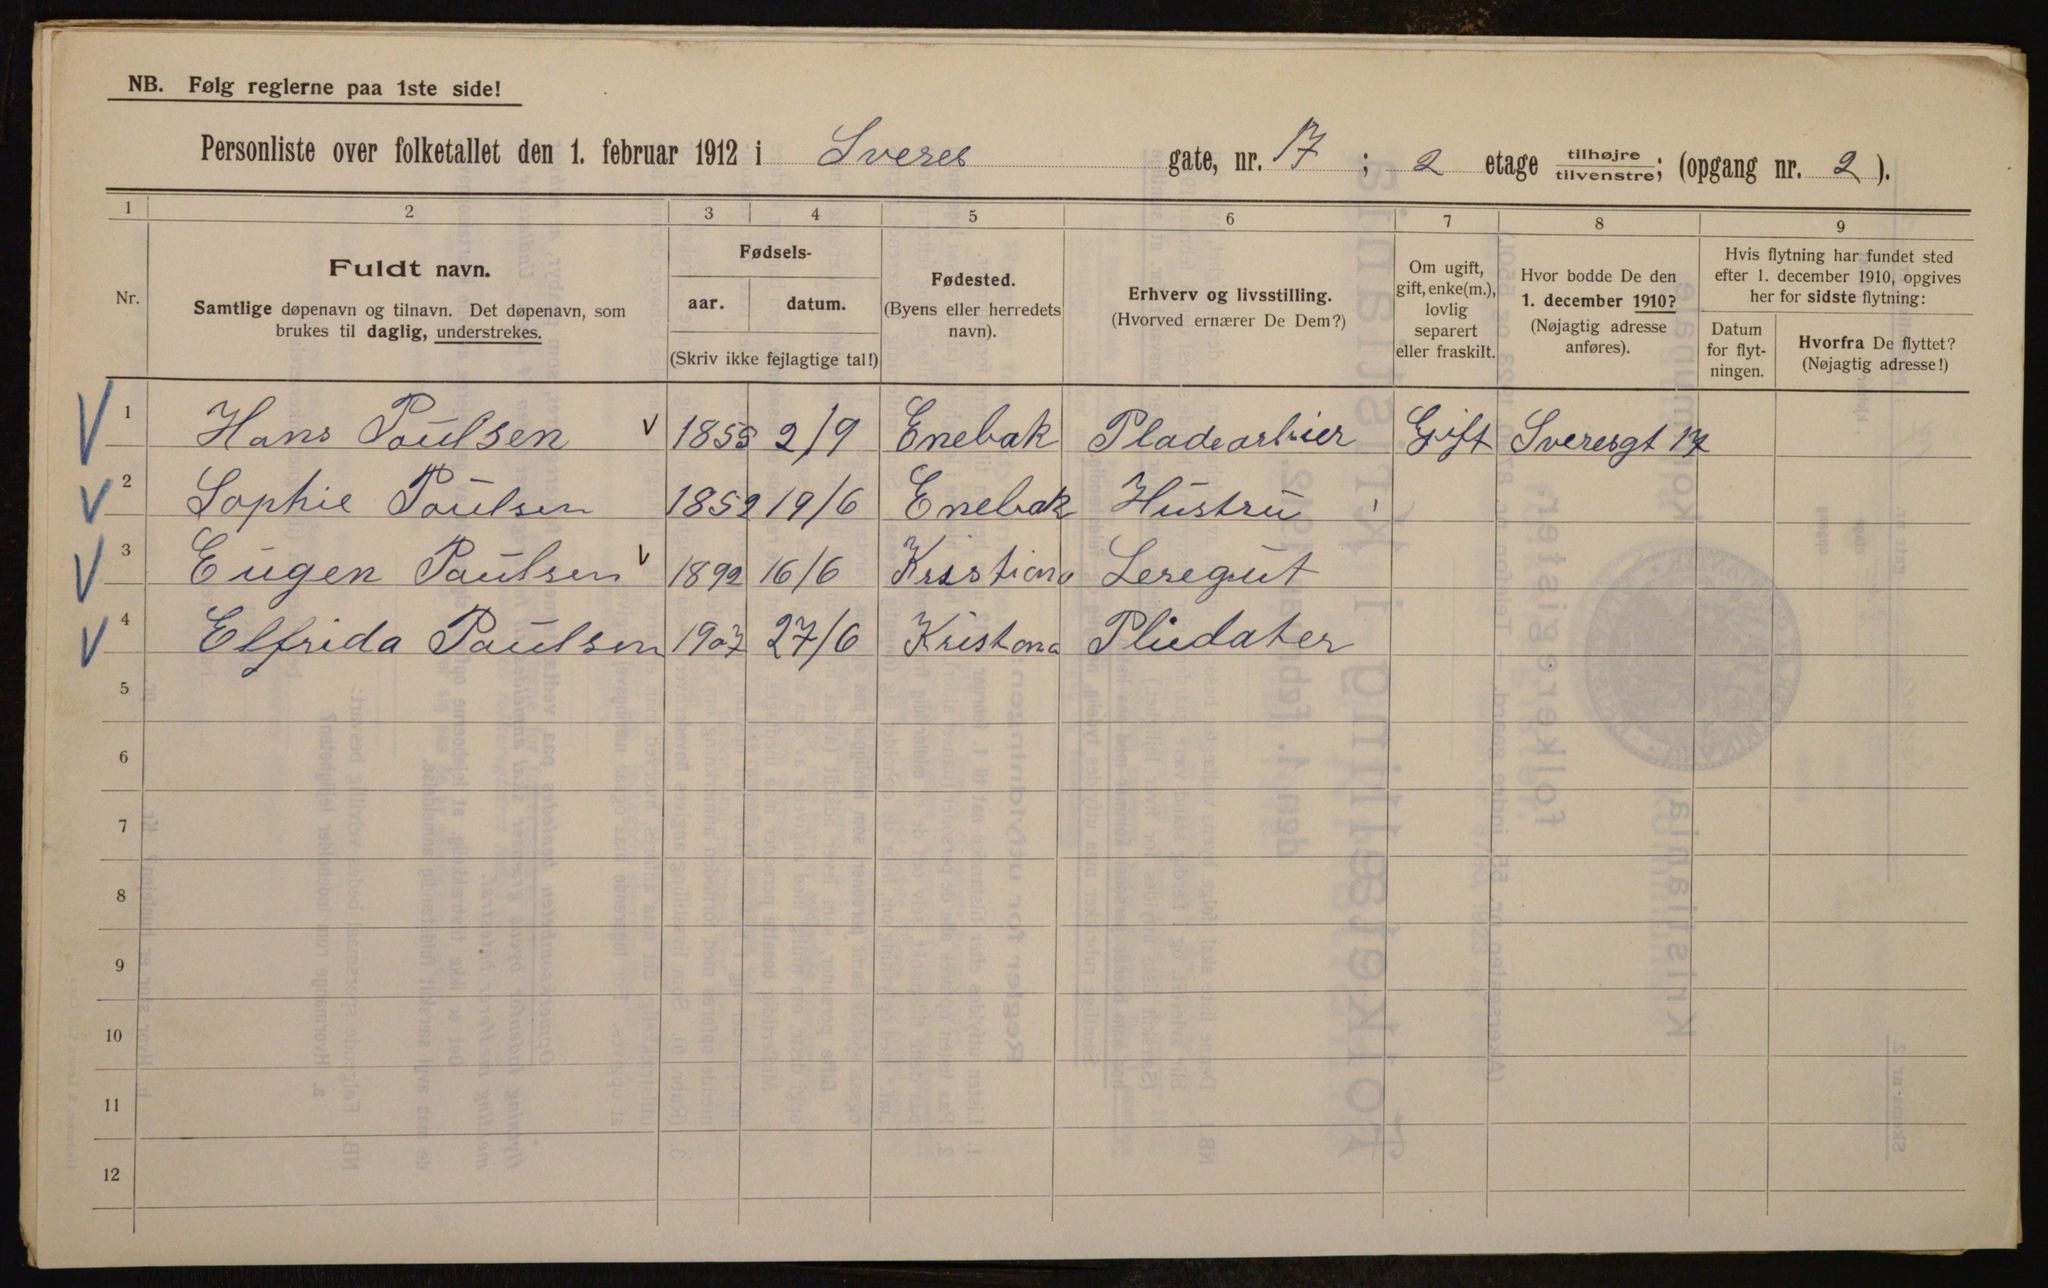 NB. Følg reglerne paa 1ste side!
Personliste over folketallet den 1. februar 1912 i Sveres gate, nr. 17; 2 etage tilhøjre/tilvenstre; (opgang nr. 2).
1 2 3 4 5 6 7 8 9
Nr.
Fuldt navn.
Samtlige døpenavn og tilnavn. Det døpenavn, som
brukes til daglig, understrekes.
Fødsels-
aar. datum.
(Skriv ikke fejlagtige tal!)
Fødested.
(Byens eller herredets
navn).
Erhverv og livsstilling.
(Hvorved ernærer De Dem?)
Om ugift,
gift, enke(m.),
lovlig
separert
eller fraskilt.
Hvor bodde De den
1. december 1910?
(Nøjagtig adresse
anføres).
Hvis flytning har fundet sted
efter 1. december 1910, opgives
her for sidste flytning:
Datum
for flyt-
ningen.
Hvorfra De flyttet?
(Nøjagtig adresse!)
1 Hans Poulsen 2/9 Enebak Gift Sveresgt 17
2 Sophie Poulsen 1852 19/6 Enebak Hustru
3 Eugen Paulsen 1892 16/6 Kristiana Leregut
4 Elfrida Paulsen 1907 27/6 Kristana Pliedater
5
6
7
8
9
10
11
12